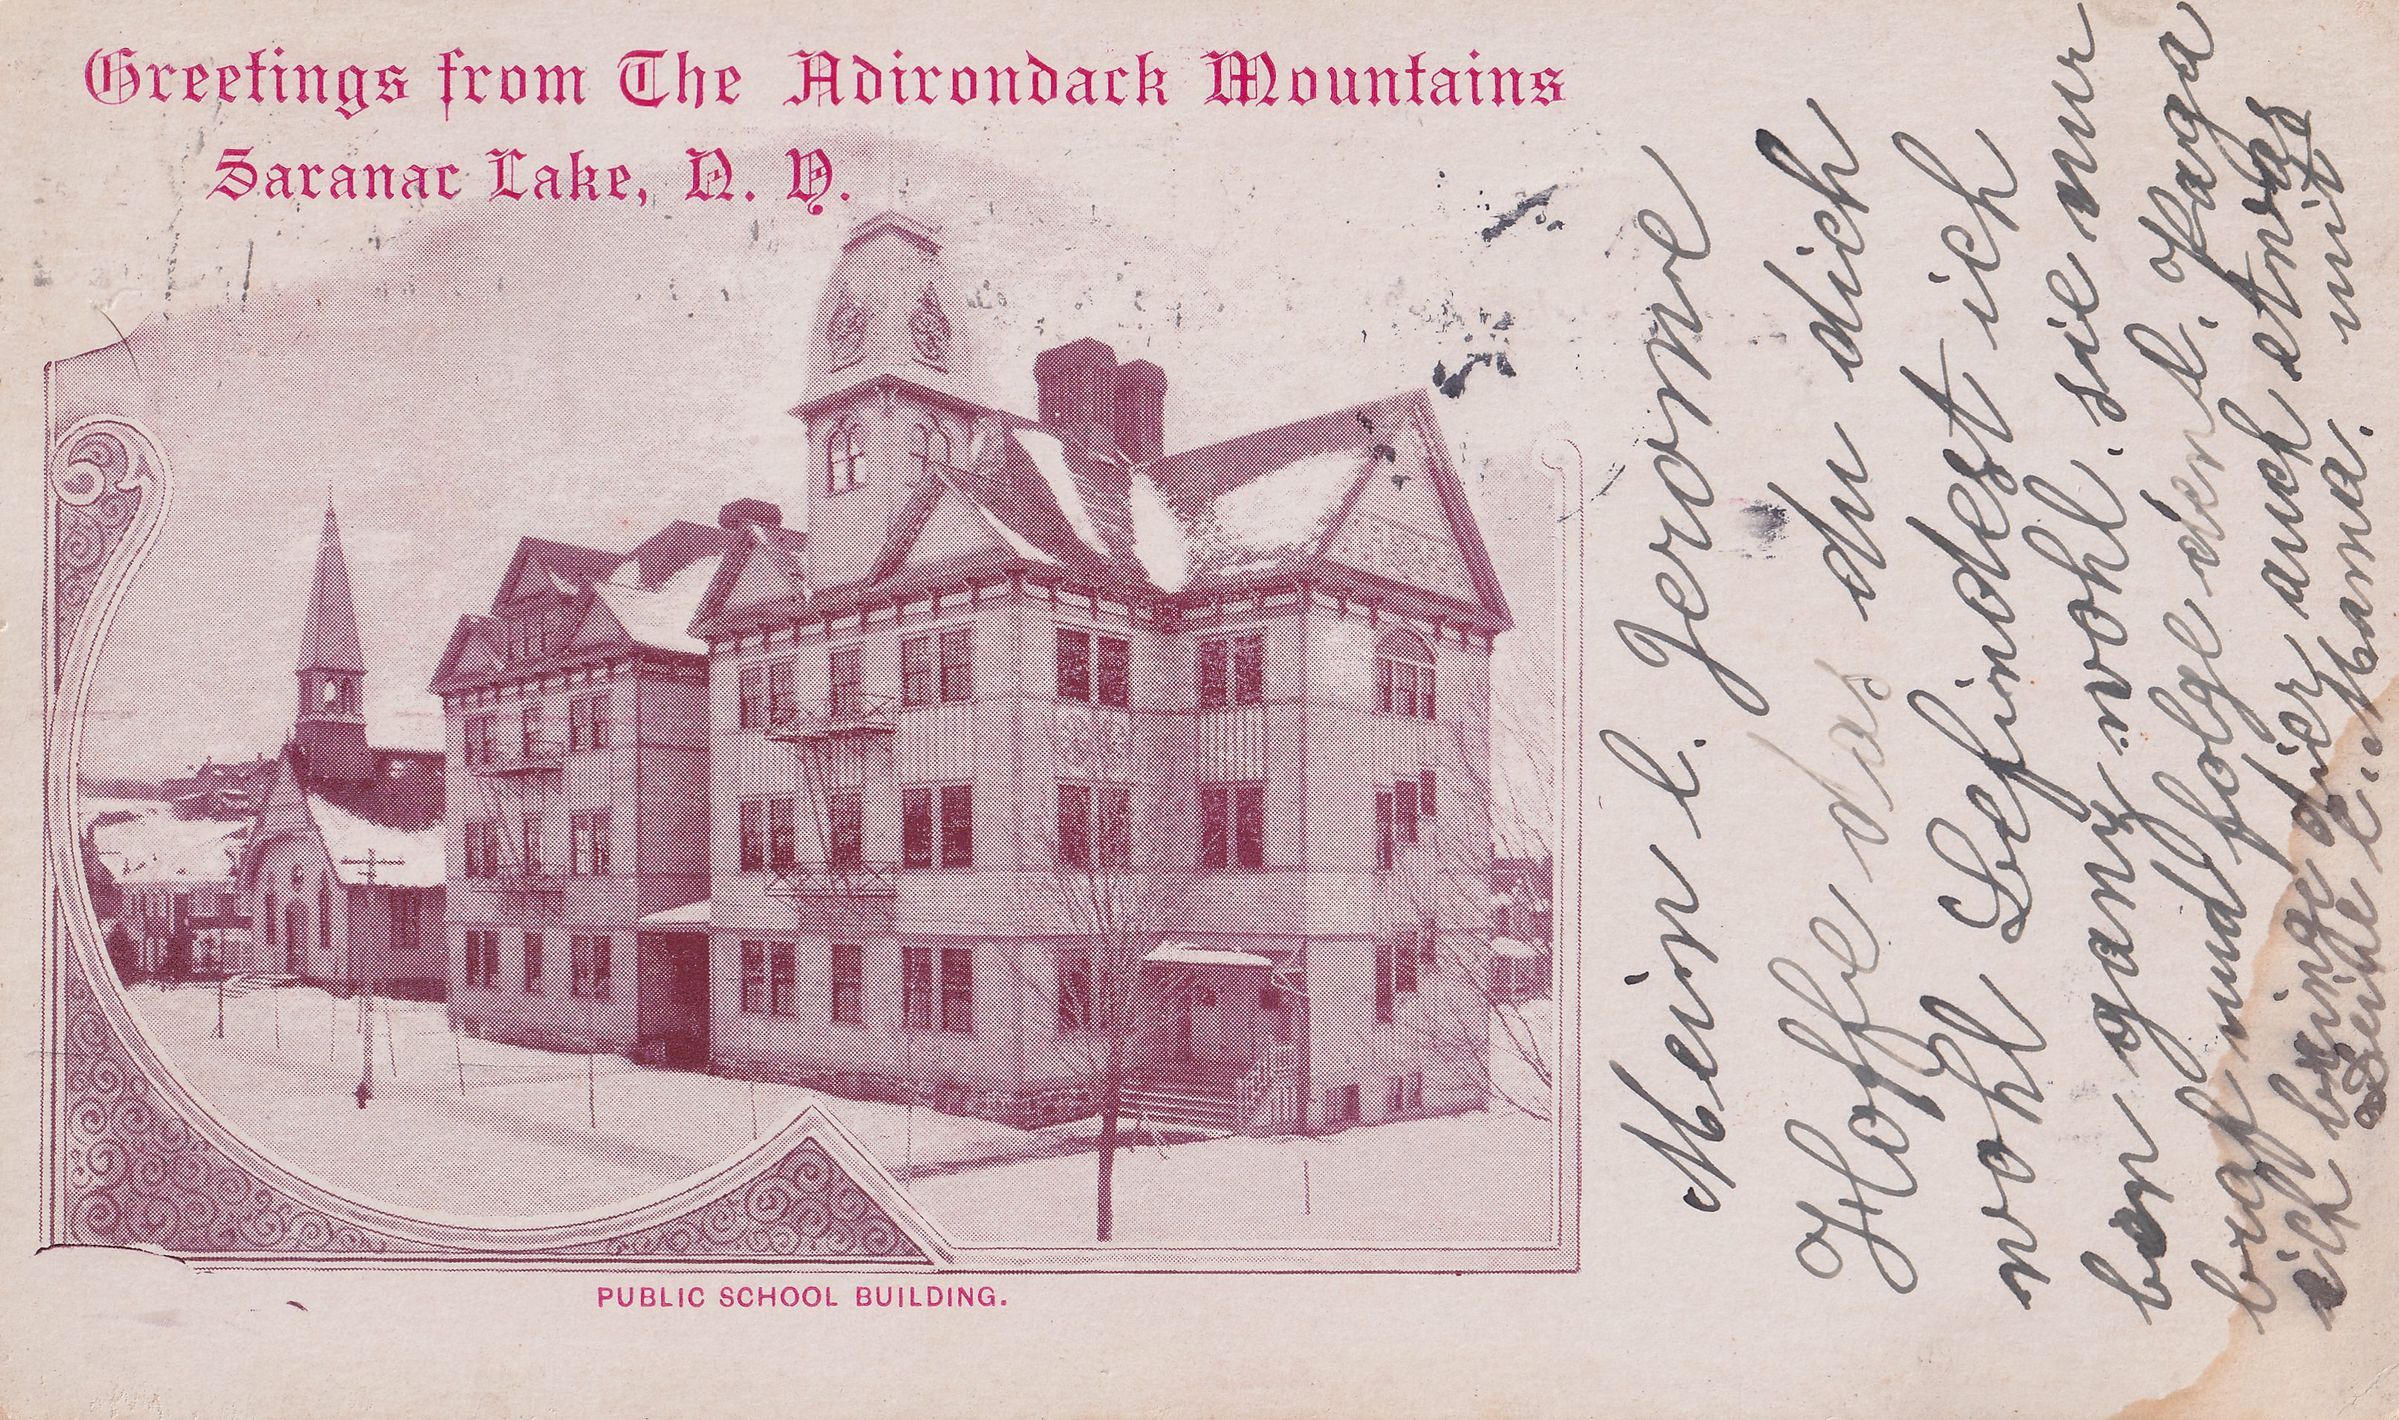 Greetings from The Adirondack Mountains
Saranac Lake, N. Y.
PUBLIC SCHOOL BUILDING.
Mein l. Jerome
Hoffe das du dich
wohl befindest ich
bin ganz wohl. sie nur
braf und folge den l.
ich bringe dier auch etwas
Deine l. Mama. mit